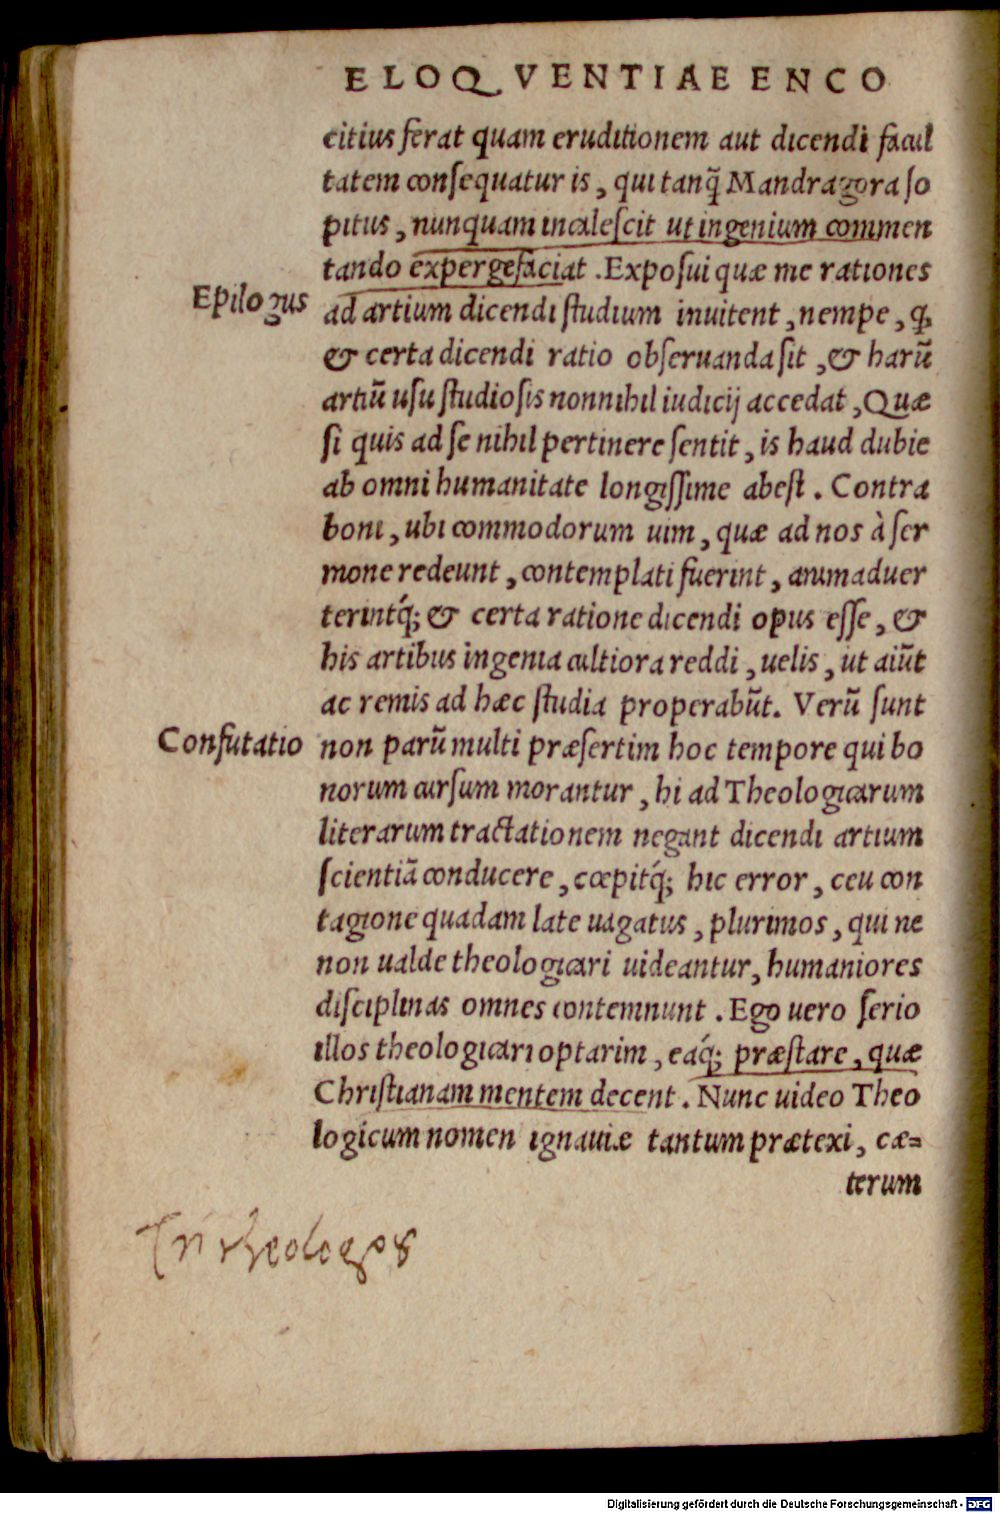 ELOQVENTIAE ENCO
citius ferat quam eruditionem aut dicendi facul
tatem consequatur is, qui tanq̃ Mandragora so
pitus, nunquam incalescit ut ingenium commen
tando expergefaciat. Exposui quæ me rationes
Epilogus
ad artium dicendi studium inuitent, nempe, q,
& certa dicendi ratio obseruanda sit, & harũ
artiũ usu studiosis nonnihil iudicij accedat, Quæ
si quis ad se nihil pertinere sentit, is haud dubie
ab omni humanitate longissime abest. Contra
boni, ubi commodorum uim, quæ ad nos à ser
mone redeunt, contemplati fuerint, animaduer
terintq́; & certa ratione dicendi opus esse, &
his artibus ingenia cultiora reddi, uelis, ut aiũt
ac remis ad hæc studia properabũt. Verũ sunt
Confutatio
non parũ multi præsertim hoc tempore qui bo
norum cursum morantur, hi ad Theologicarum
literarum tractationem negant dicendi artium
scientiã conducere, cœpitq́; hic error, ceu con
tagione quadam late uagatus, plurimos, qui ne
non ualde theologicari uideantur, humaniores
disciplinas omnes contemnunt. Ego uero serio
illos theologicari optarim, eaq́; præstare, quæ
Christianam mentem decent. Nunc uideo Theo
logicum nomen ignauiæ tantum prætexi, cæ=
terum
In theologos
Digitalisierung gefördert durch die Deutsche Forschungsgemeinschaft - DFG